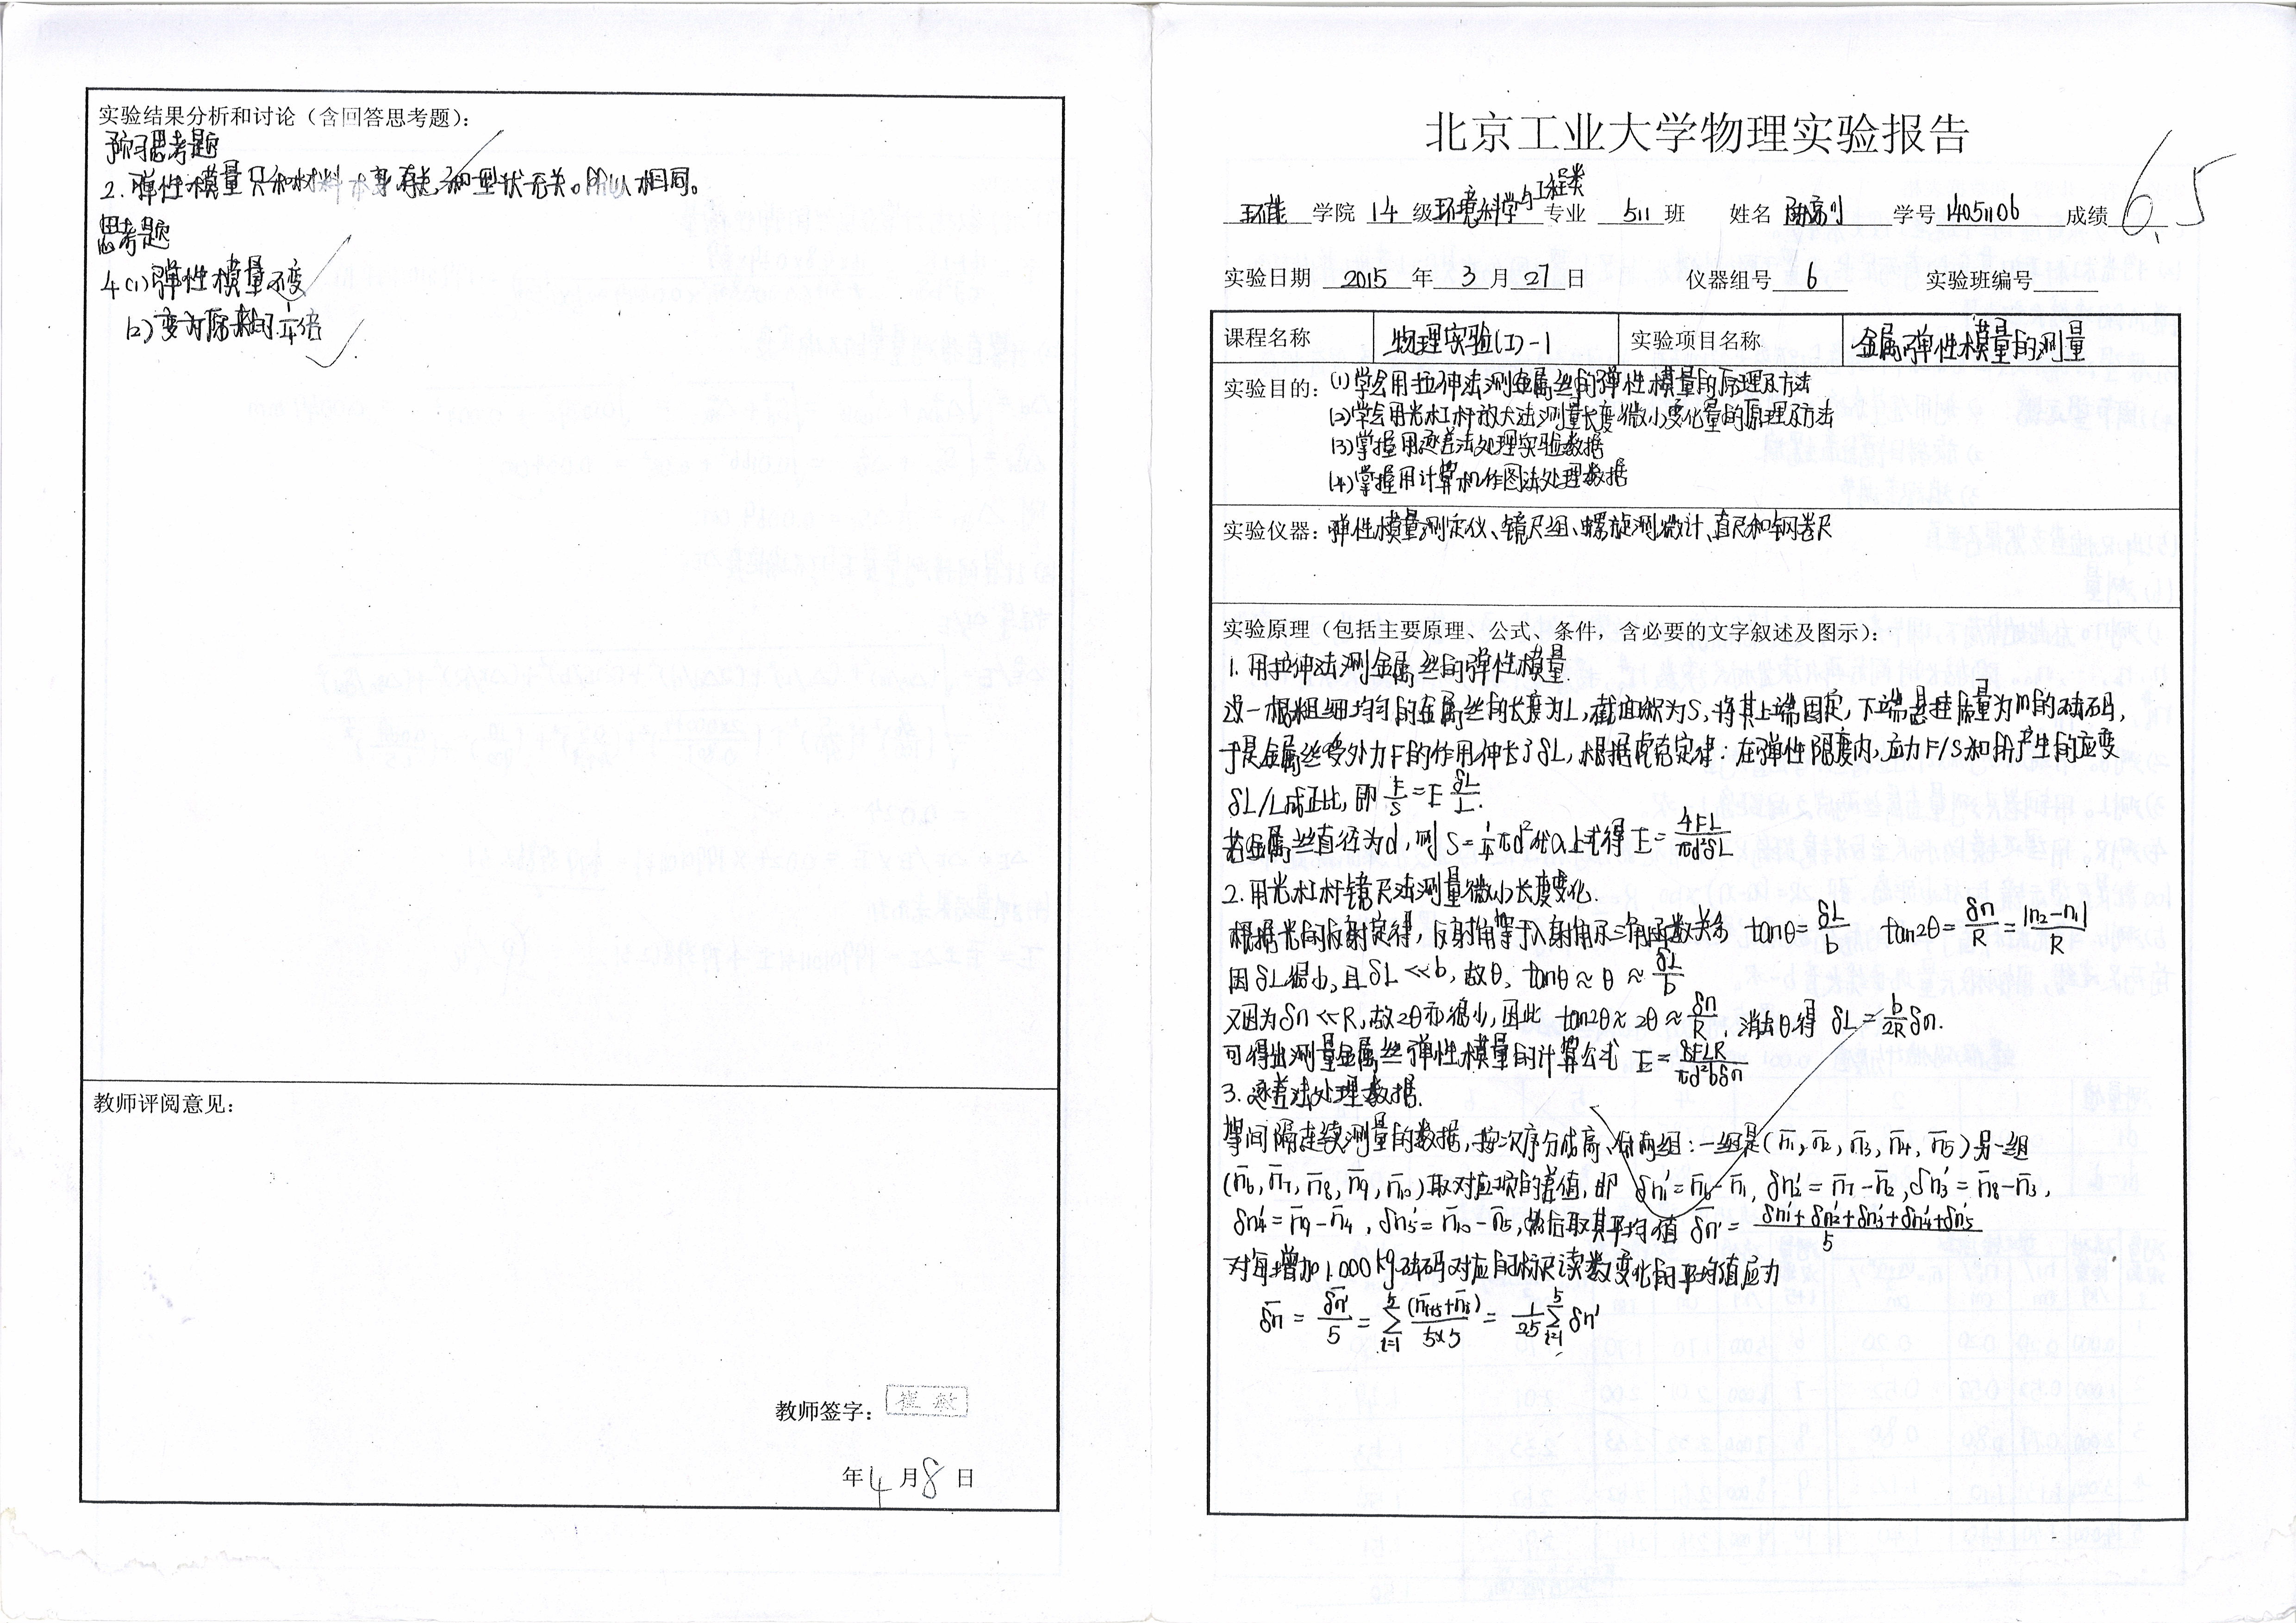 实验结果分析和讨论（含回答思考题）：
预习思考题
2.弹性模量只和材料本身有关,和型状无关。所以相同。
思考题
4(1)弹性模量不变
(2)变为原来的1/4倍
教师评阅意见：
教师签字：崔敏
年4月8日
北京工业大学物理实验报告
环能 学院 14 级 环境科学与工程类 专业 511 班 姓名 学号 14051106 成绩 6.5
实验日期 2015 年 3 月 27 日 仪器组号 6 实验班编号
课程名称 物理实验(I)-1 实验项目名称 金属弹性模量的测量
实验目的：(1)学会用拉伸法测金属丝的弹性模量的原理及方法
(2)学会用光杠杆放大法测量长度微小变化量的原理及方法
(3)掌握用逐差法处理实验数据
(4)掌握用计算机作图法处理数据
实验仪器：弹性模量测定仪、镜尺组、螺旋测微计、直尺和钢卷尺
实验原理（包括主要原理、公式、条件，含必要的文字叙述及图示）：
1.用拉伸法测金属丝的弹性模量.
设一根粗细均匀的金属丝的长度为L,截面积为S,将其上端固定,下端悬挂质量为m的砝码,
于是金属丝受外力F的作用伸长了δL,根据胡克定律:在弹性限度内,应力F/S和所产生的应变
δL/L成正比,即 F/S=E δL/L.
若金属丝直径为d,则S=1/4πd²代入上式得 E=4FL/πd²δL
2.用光杠杆镜尺法测量微小长度变化.
根据光的反射定律,反射角等于入射角示三角函数关系 tanθ=δL/b tan2θ=δn/R=|n₂-n₁|/R
因δL很小,且δL≪b,故θ, tanθ≈θ≈δL/b
又因为δn≪R,故2θ亦很小,因此 tan2θ≈2θ≈δn/R,消去θ得 δL=b/2R δn.
可得出测量金属丝弹性模量的计算公式 E=8FLR/πd²bδn
3.逐差法处理数据.
等间隔连续测量的数据,按次序分成高、低两组:一组是(n̄₁,n̄₂,n̄₃,n̄₄,n̄₅)另一组
(n̄₆,n̄₇,n̄₈,n̄₉,n̄₁₀)取对应项的差值,即 δn₁'=n̄₆-n̄₁,δn₂'=n̄₇-n̄₂,δn₃'=n̄₈-n̄₃,
δn₄'=n̄₉-n̄₄,δn₅'=n̄₁₀-n̄₅,然后取其平均值 δn̄'=(δn₁'+δn₂'+δn₃'+δn₄'+δn₅')/5
对每增加1.000kg砝码对应的标尺读数变化的平均值应为
δn̄=δn̄'/5=∑(i=1→5)(n̄ᵢ₊₅+n̄ᵢ)/5×5=1/25∑(i=1→5)δn'